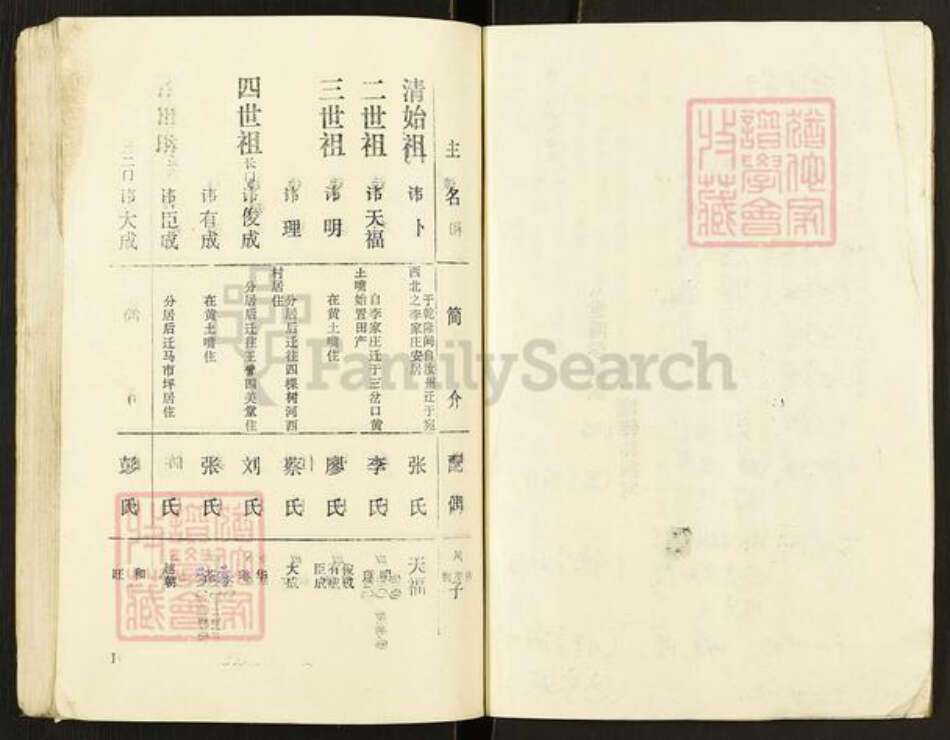 主名
简介
配偶
子
清始祖
讳卜
于乾隆间自汝州迁于宛
西北之李家庄安居
张氏
天福
二世祖
讳天福
自李家庄迁于三岔口黄
土嘴始置田产
李氏
明
三世祖
讳明
在黄土嘴住
廖氏
俊成
有成
臣成
讳理
分居后迁往四棵树河西
村居住
蔡氏
大成
四世祖
长门
讳俊成
分居后迁往王营四美堂住
刘氏
华
讳有成
在黄土嘴住
张氏
讳臣成
分居后迁马市坪居住
氏
朝
二门
讳大成
彭氏
和
旺
1
犹他家
谱学会
收藏
犹他家
谱学会
收藏
FamilySearch